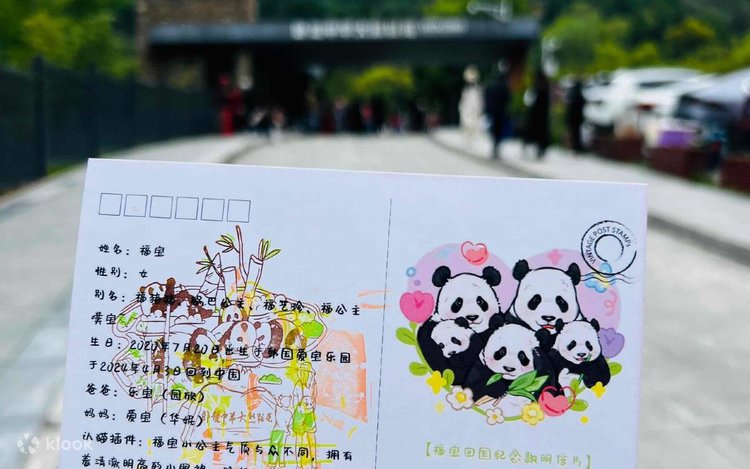 姓名：福宝
性别：女
别名：福公主
生日：2020年7月20日出生于韩国爱宝乐园
于2024年4月3日回到中国
爸爸：乐宝（园欣）
妈妈：爱宝（华妮）
认猫插件：福宝小公主气质与众不同，拥有
VINTAGE POST STAMPS
【福宝回国纪念款明信片】
klook